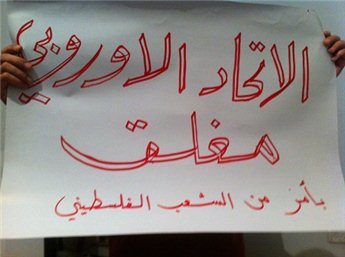 الاتحاد الاوروبي
مغلق
بأمر من الشعب الفلسطيني